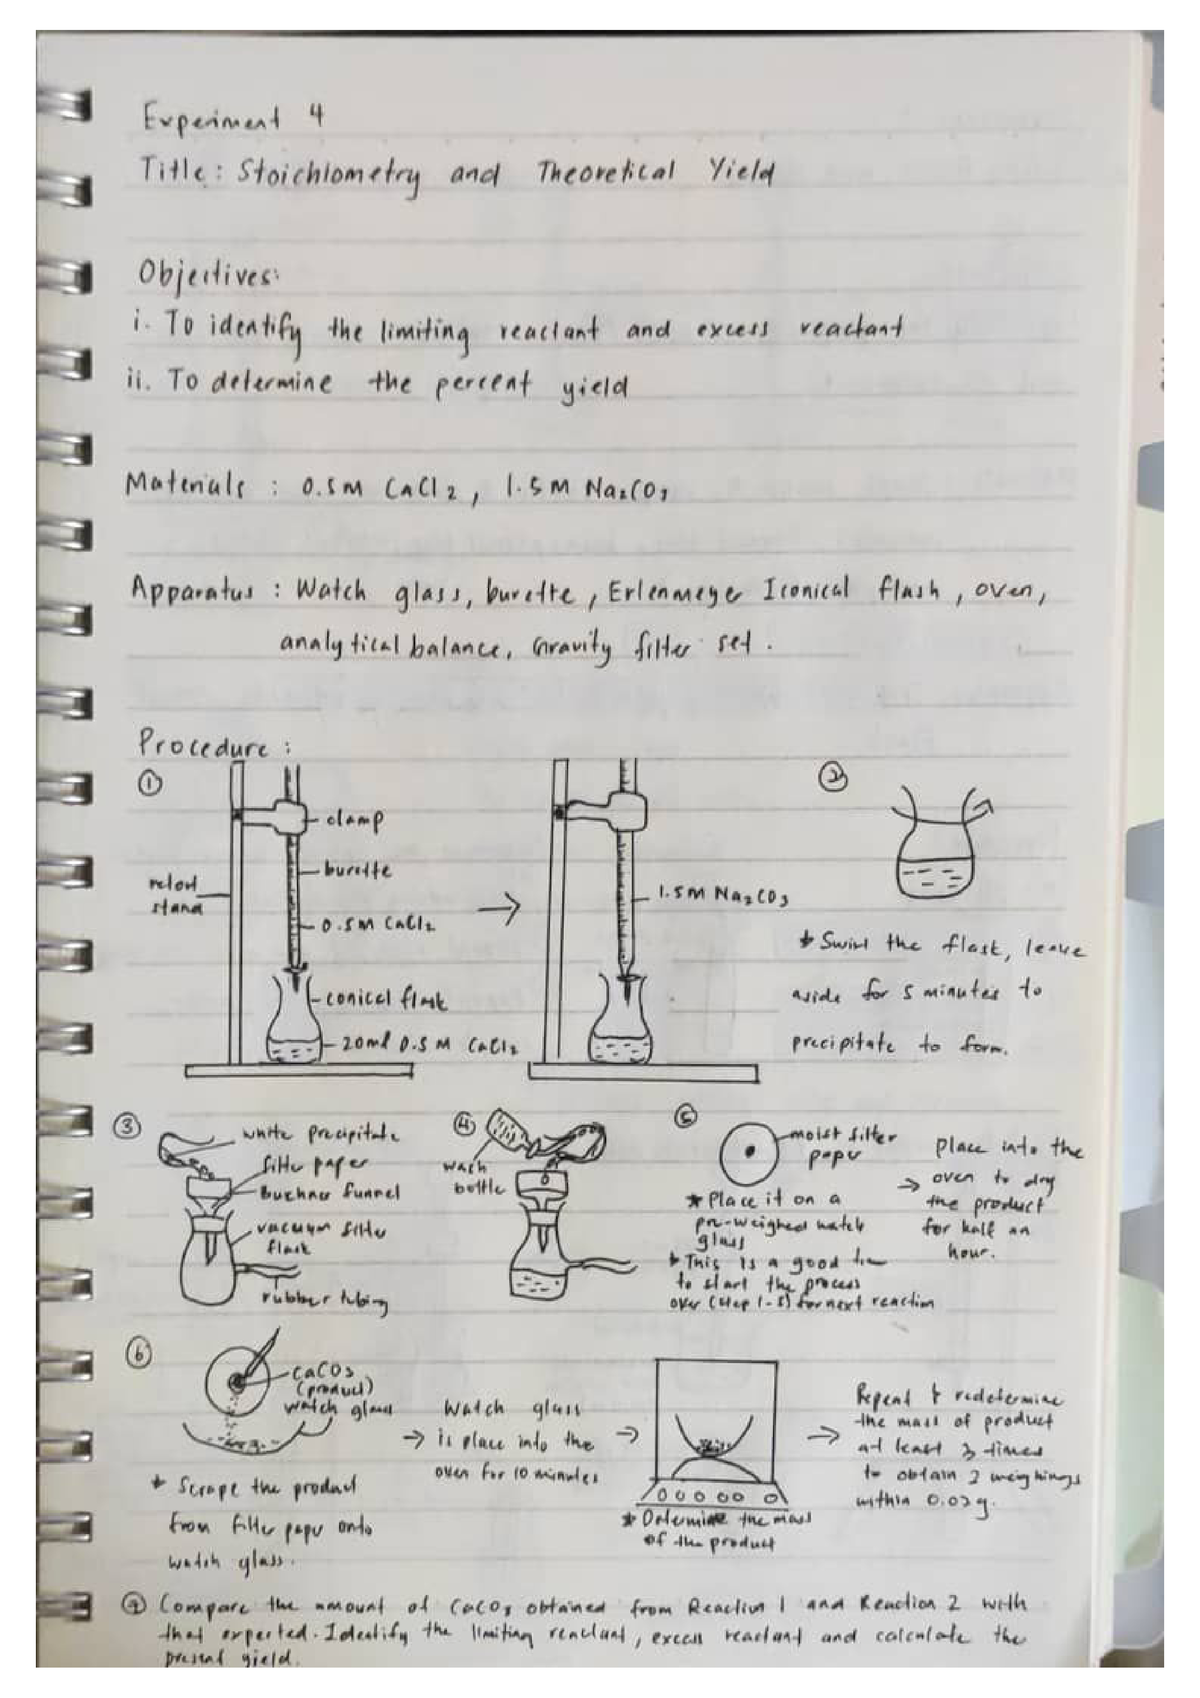 Experiment 4
Title: Stoichlometry and Theoretical Yield
Objectives:
i. To identify the limiting reactant and excess reactant
ii. To determine the percent yield
Materials : 0.5M CaCl2, 1.5M Na2CO3
Apparatus : Watch glass, burette, Erlenmeyer Iconical flash, oven,
analytical balance, Gravity filter set.
Procedure :
①
clamp
burette
retort
stand
0.5M CaCl2
conical flask
20ml 0.5 M CaCl2
→
1.5M Na2CO3
②
* Swirl the flask, leave
aside for 5 minutes to
precipitate to form.
③
white precipitate
filter paper
buchner funnel
vacuum filter
flask
rubber tubing
④
wash
bottle
⑤
moist filter
paper
* Place it on a
pre-weighed watch
glass
* This is a good
to start the process
over (step 1-5) for next reaction
→ place into the
oven to dry
the product
for half an
hour.
⑥
CaCO3
(product)
watch glass
* Scrape the product
from filter paper onto
watch glass.
→ Watch glass
is place into the
oven for 10 minutes
→
* Determine the mass
of the product
→ Repeat & redetermine
the mass of product
at least 3 times
to obtain 2 weighings
within 0.02g.
⑦ Compare the amount of CaCO3 obtained from Reaction 1 and Reaction 2 with
that expected. Identify the limiting reactant, excess reactant and calculate the
present yield.